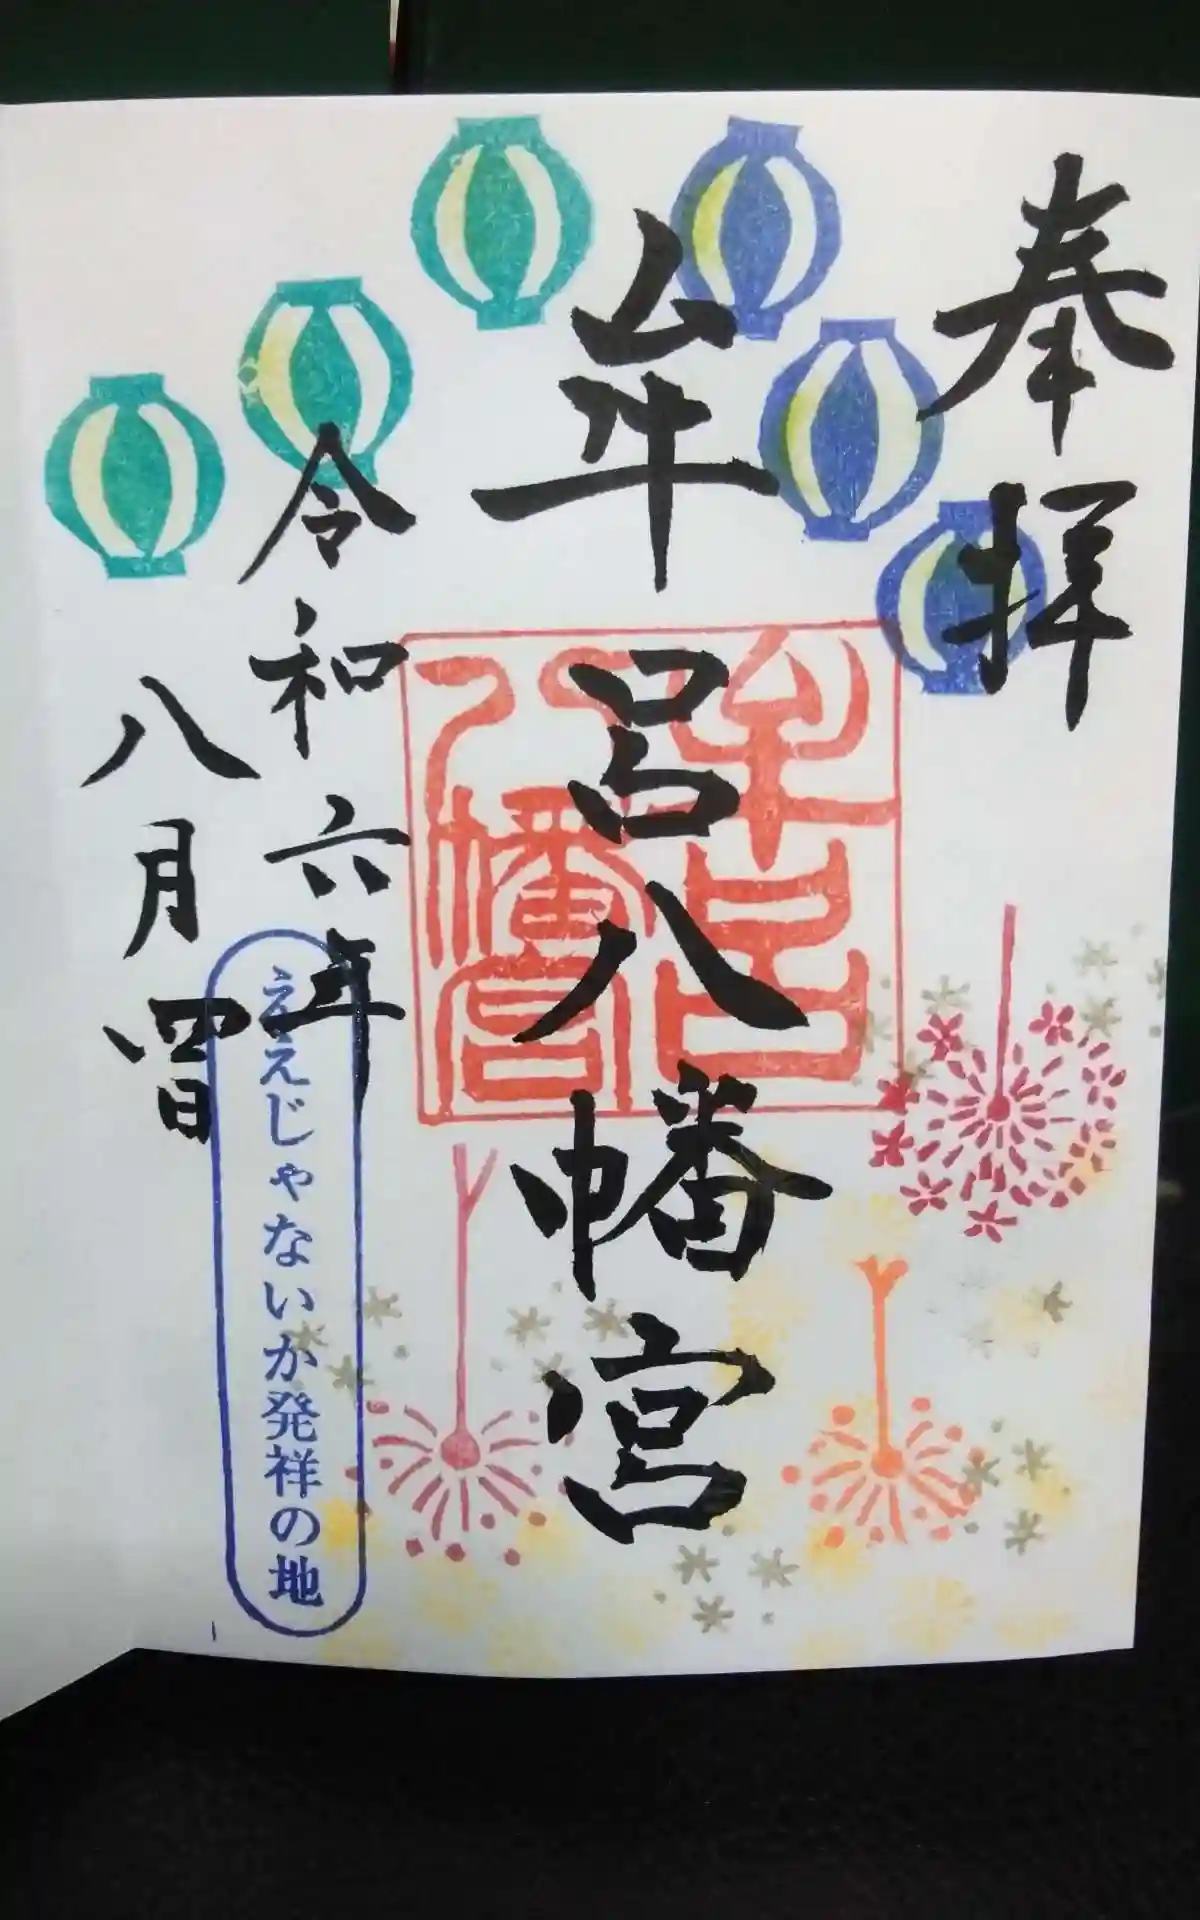 奉拝
牟呂八幡宮
牟呂
八幡宮
令和六年
八月四日
ええじゃないか発祥の地